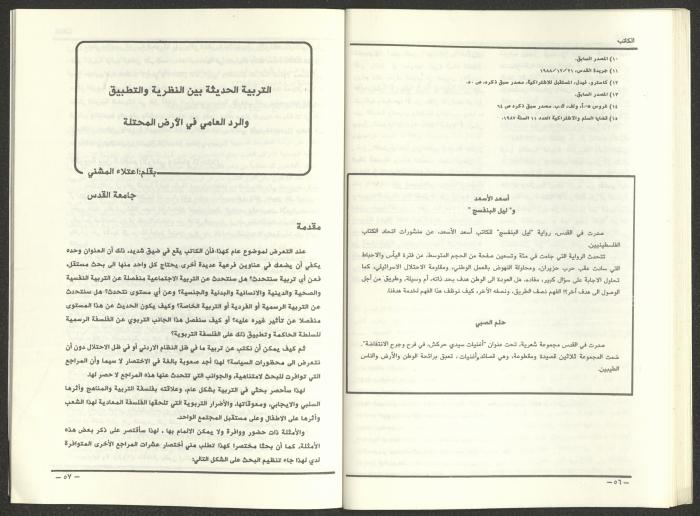 الكاتب
١٠) المصدر السابق.
١١) جريدة القدس، ١٩٨٨/١٢/٢١
١٢) كاسترو، فيدل، المستقبل للاشتراكية، مصدر سبق ذكره، ص ٥٠.
١٣) المصدر السابق.
١٤) فروس أ.ف، وف. ك.ب. مصدر سبق ذكره ص ٦٤
١٥) قضايا السلم والاشتراكية العدد ١١ السنة ١٩٨٧.
أسعد الأسعد
و" ليل البنفسج "
صدرت في القدس، رواية "ليل البنفسج" للكاتب أسعد الأسعد، عن منشورات اتحاد الكتاب
الفلسطينيين.
تتحدث الرواية التي جاءت في مئة وتسعين صفحة من الحجم المتوسط، عن فترة اليأس والاحباط
التي سادت عقب حرب حزيران، ومحاولة النهوض بالعمل الوطني، ومقاومة الاحتلال الاسرائيلي، كما
تحاول الاجابة على سؤال كبير، مفاده، هل العودة الى الوطن هدف بحد ذاته، أم وسيلة، وطريق من أجل
الوصول الى هدف آخر؟! الفهم نصف الطريق، ونصفه الآخر، كيف نوظف هذا الفهم لخدمة هدفنا.
حلم الصبي
صدرت في القدس مجموعة شعرية، تحت عنوان "أغنيات سيدي حركش، في فرح وجرح الانتفاضة".
ضمت المجموعة ثلاثين قصيدة ومقطوعة، وهي قصائد وأغنيات، تعبق برائحة الوطن والأرض والناس
الطيبين.
— ٥٦ —
التربية الحديثة بين النظرية والتطبيق
والرد العامي في الأرض المحتلة
بقلم: اعتلاء المشني
جامعة القدس
مقدمة
عند التعرض لموضوع عام كهذا، فأن الكاتب يقع في ضيق شديد، ذلك أن العنوان وحده
يكفي أن يضعك في عناوين فرعية عديدة أخرى يحتاج كل واحد منها الى بحث مستقل،
فعن أي تربية سنتحدث؟ هل سنتحدث عن التربية الاجتماعية منفصلة عن التربية النفسية
والصحية والدينية والانسانية والبدنية والجنسية؟ وعن أي مستوى نتحدث؟ هل سنتحدث
عن التربية الرسمية أو الفردية أو التربية الخاصة؟ وكيف يكون الحديث عن هذا المستوى
منفصلا عن تأثير غيره عليه؟ أو كيف سنفصل هذا الجانب التربوي عن الفلسفة الرسمية
للسلطة الحاكمة وتطبيق ذلك على الفلسفة التربوية؟
ثم كيف يمكن أن نكتب عن تربية ما في ظل النظام الاردني أو في ظل الاحتلال دون أن
نتعرض الى محظورات السياسة؟ لهذا أجد صعوبة بالغة في الاختصار لا سيما وأن المراجع
التي توافرت للبحث لامتناهية، والجوانب التي تتحدث عنها هذه المراجع لا حصر لها.
لهذا سأحصر بحثي في التربية بشكل عام، وعلاقته بفلسفة التربية والمناهج وأثرها
السلبي والايجابي، ومعوقاتها، والأضرار التربوية التي تلحقها الفلسفة المعادية لهذا الشعب
وأثرها على الاطفال وعلى مستقبل المجتمع الواحد.
والأمثلة ذات حضور ووافرة ولا يمكن الالمام بها، لهذا سأقتصر على ذكر بعض هذه
الأمثلة، كما أن بحثا مختصرا كهذا تطلب مني أختصار عشرات المراجع الأخرى المتوافرة
لدي لهذا جاء تنظيم البحث على الشكل التالي:
— ٥٧ —